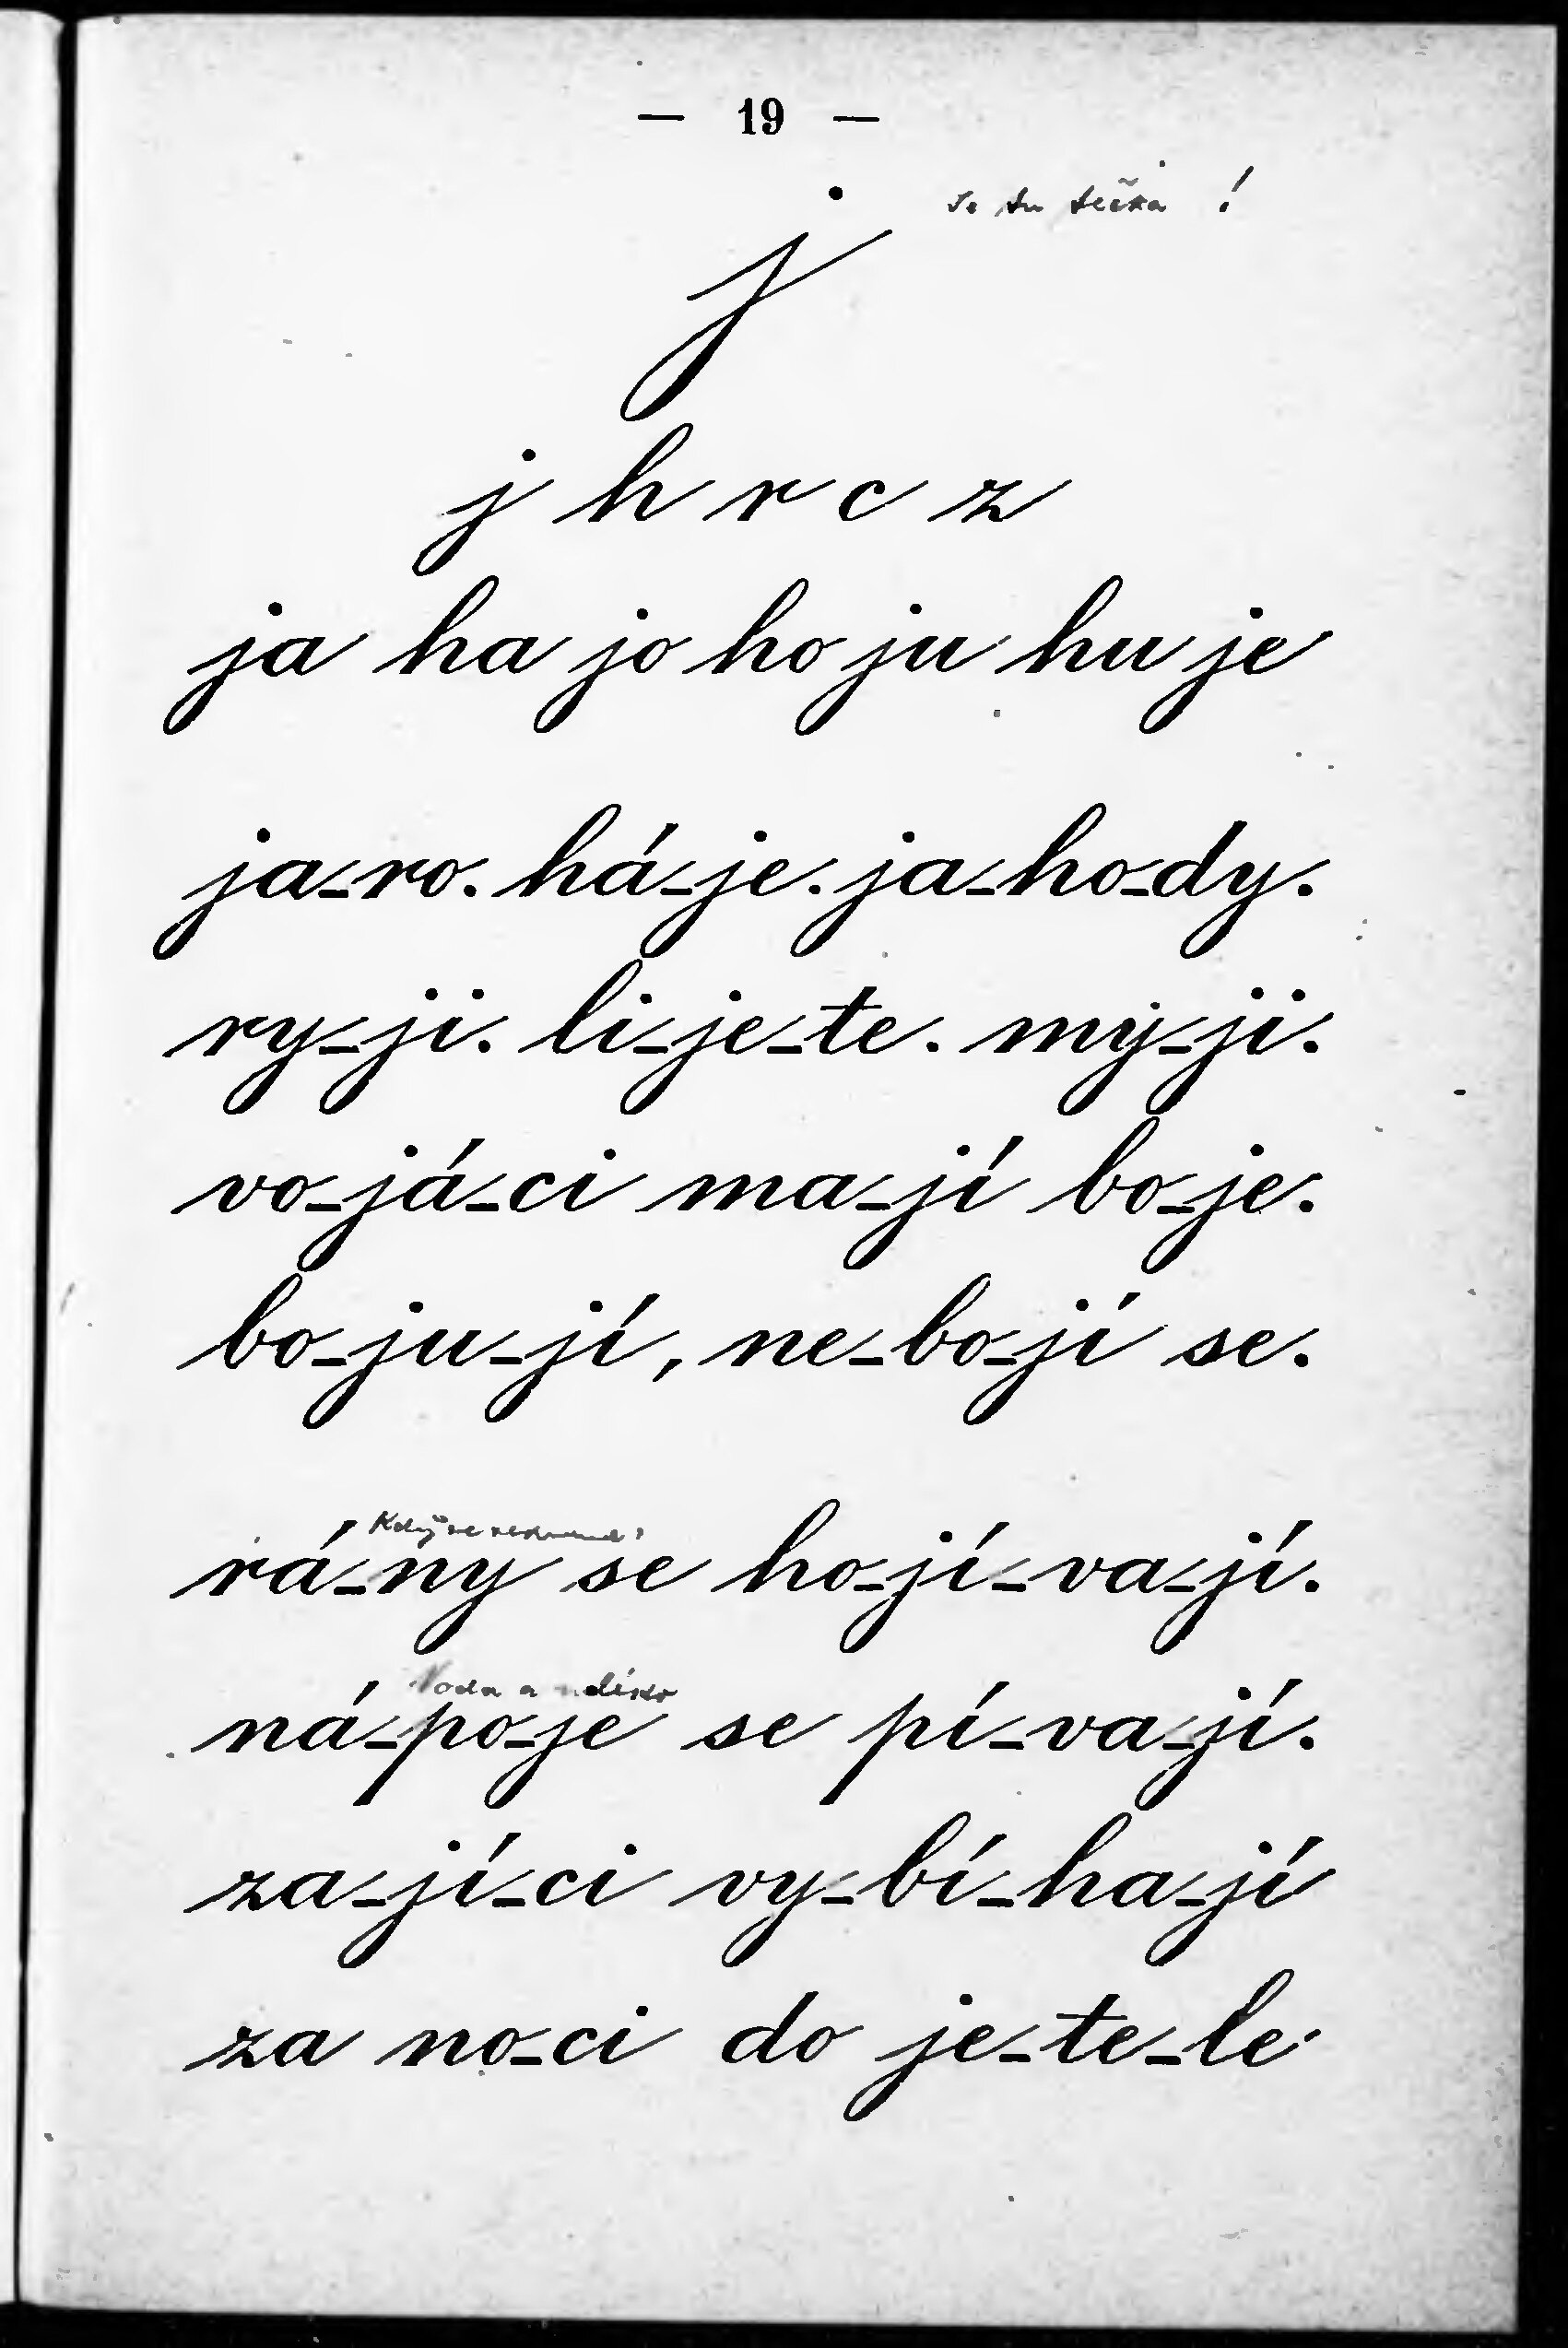 — 19 —
Je tu tečka !
j
j h r c z
ja ha jo ho ju hu je
ja-ro. há-je. ja-ho-dy.
ry-ji. li-je-te. my-ji.
vo-já-ci ma-jí bo-je.
bo-ju-jí, ne-bo-jí se.
Když se
rá-ny se ho-jí-va-jí.
Voda a
ná-po-je se pí-va-jí.
za-jí-ci vy-bí-ha-jí
za no-ci do je-te-le.